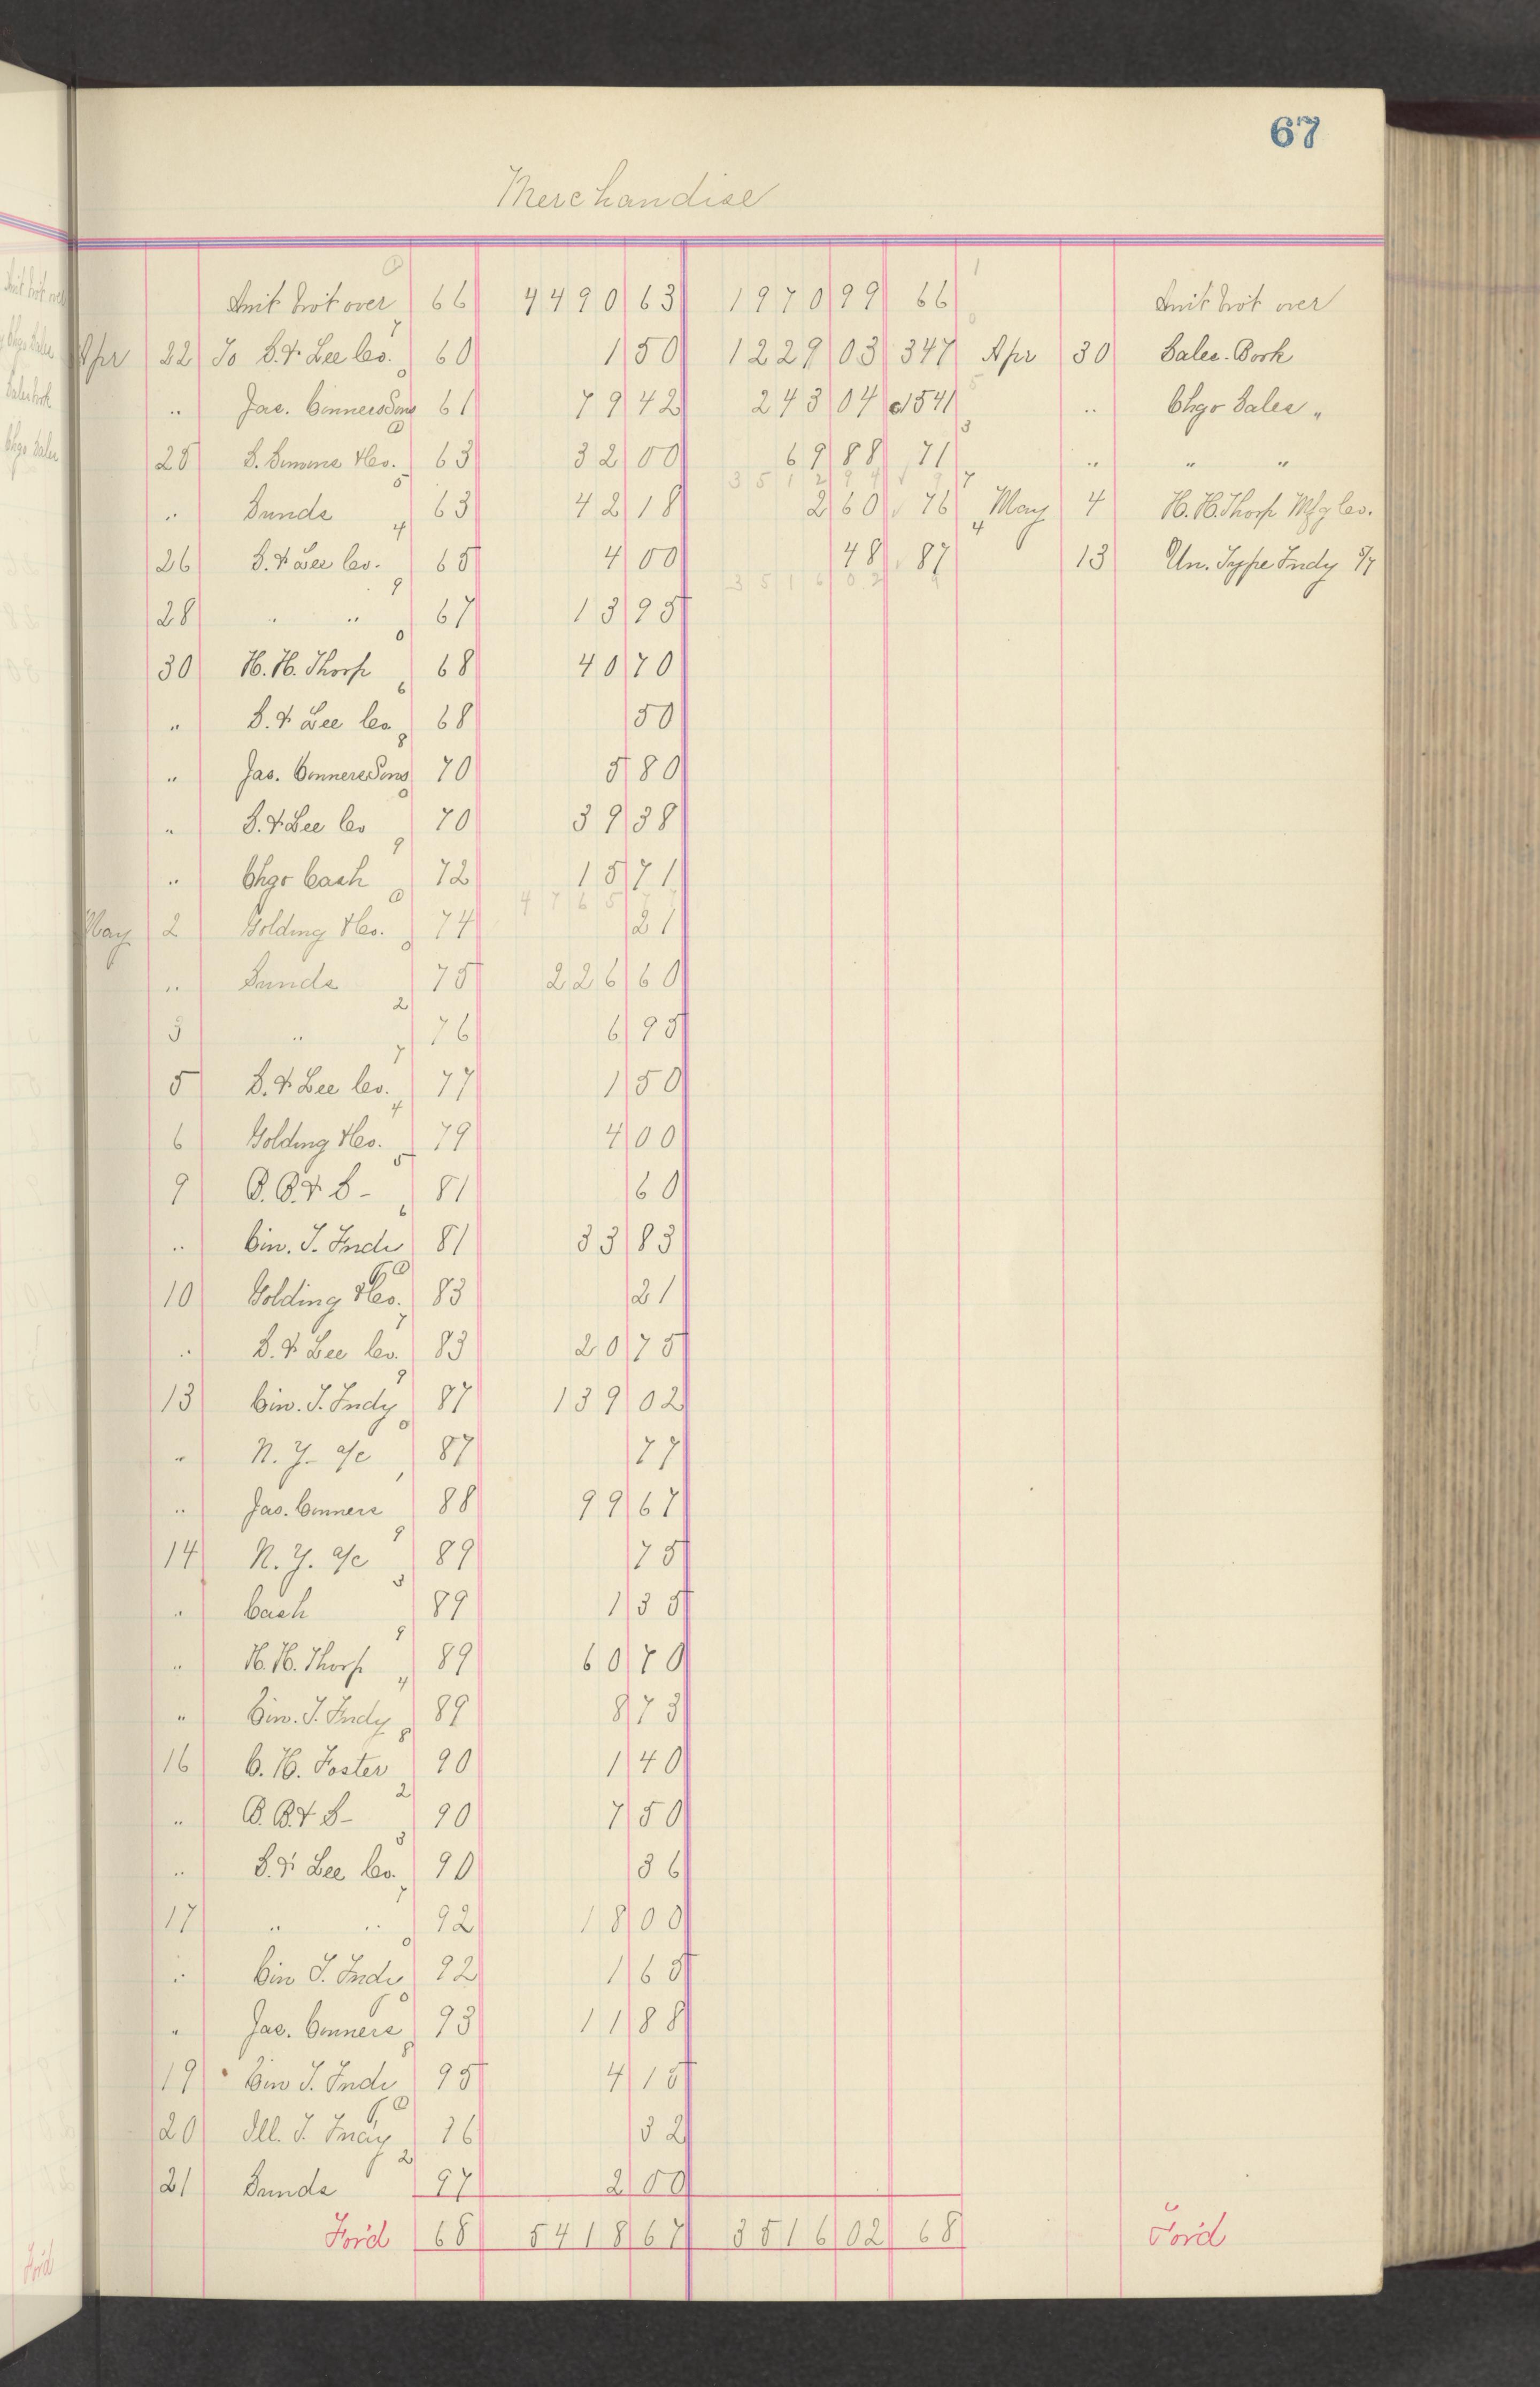 67
Merchandise
Amt brot over 66 4490 63 1970 99 66 Amt brot over
Apr 22 To S. & Lee Co. 60 1 50 1229 03 347 Apr 30 Sales Book
" Jas. Conners Sons 61 79 42 243 04 c1541 " Chgo Sales "
25 & Co. 63 32 00 69 88 71 " " "
" Sunds 63 42 18 2 60 76 May 4 H. H. Thorp Mfg Co.
26 S. & Lee Co. 65 4 00 48 87 13 Un. Type Fndy
28 " " 67 13 95
30 H. H. Thorp 68 40 70
" S. & Lee Co 68 50
" Jas. Conners Sons 70 5 80
" S. & Lee Co 70 39 38
" Chgo Cash 72 15 71
4765
May 2 Golding & Co. 74 21
" Sunds 75 226 60
3 " 76 6 95
5 S. & Lee Co. 77 1 50
6 Golding & Co. 79 4 00
9 B. B. & S- 81 60
" Cin. T. Fndy 81 33 83
10 Golding & Co. 83 21
" S. & Lee Co. 83 20 75
13 Cin. T. Fndy 87 139 02
" N. Y. a/c 87 77
" Jas. Conners 88 99 67
14 N. Y. a/c 89 75
" Cash 89 1 35
" H. H. Thorp 89 60 70
" Cin. T. Fndy 89 8 73
16 C. H. Foster 90 1 40
" B. B. & S- 90 7 50
" S. & Lee Co. 90 36
17 " " 92 18 00
" Cin T. Fndy 92 1 65
" Jas. Conners 93 11 88
19 Cin T. Fndy 95 4 15
20 Ill. T. Fndy 96 32
21 Sunds 97 2 00
For'd 68 5418 67 3516 02 68 For'd